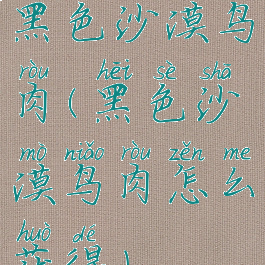 黑色沙漠鸟
ròu hēi sè shā
肉(黑色沙
mò niǎo ròu zěn me
漠鸟肉怎么
huò dé
获得)